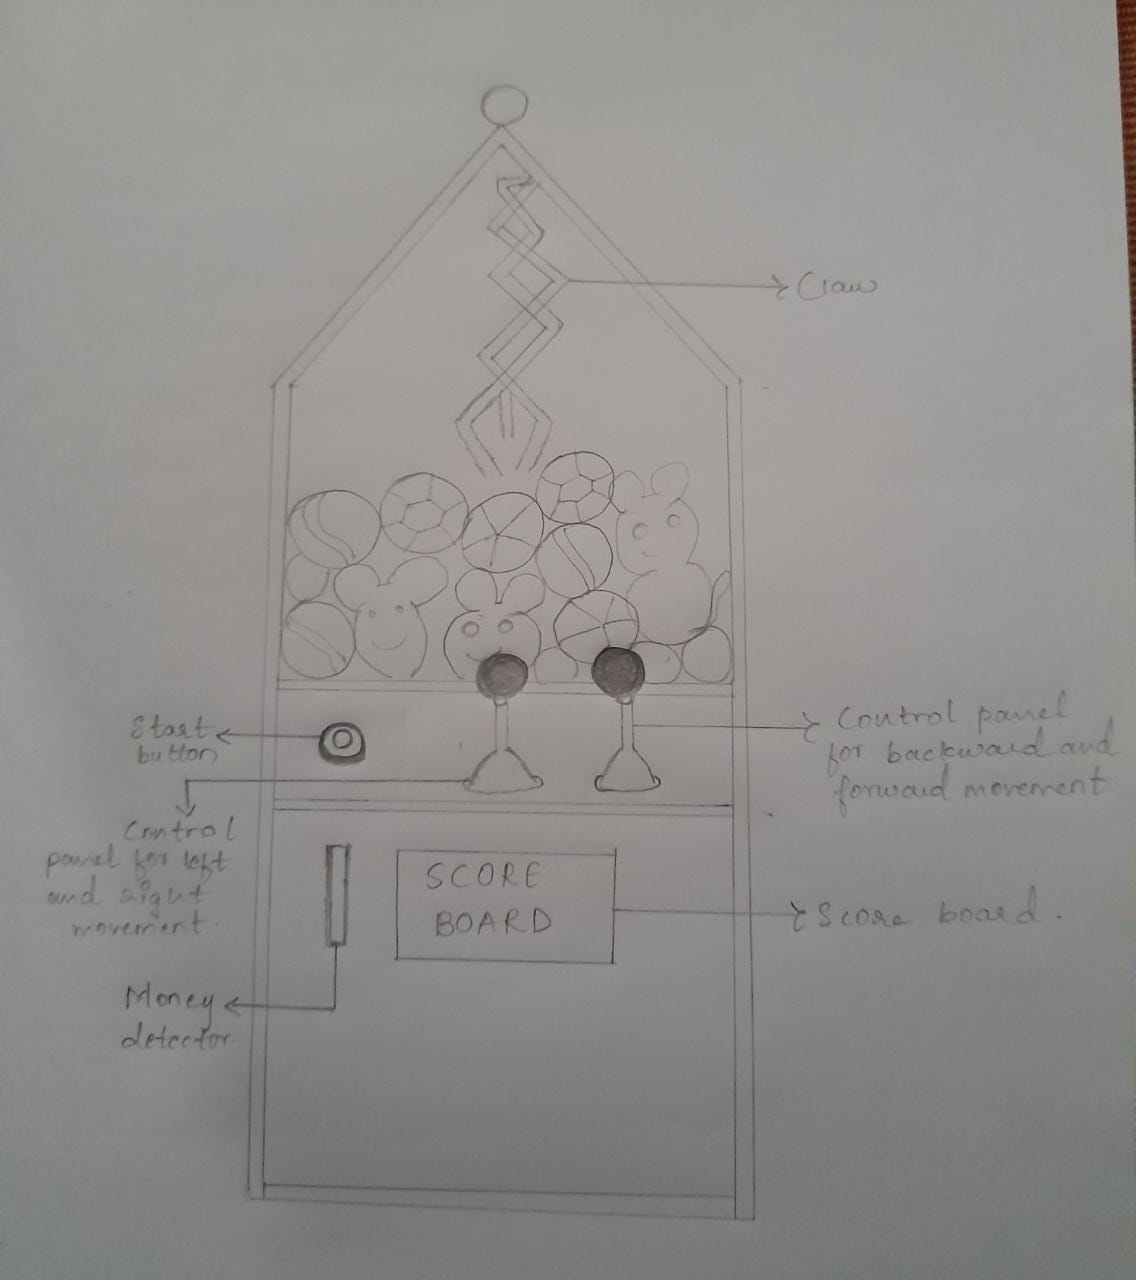 Claw
Start
button
Control panel
for backward and
forward movement
Control
panel for left
and right
movement.
SCORE
BOARD
Score board.
Money
detector.